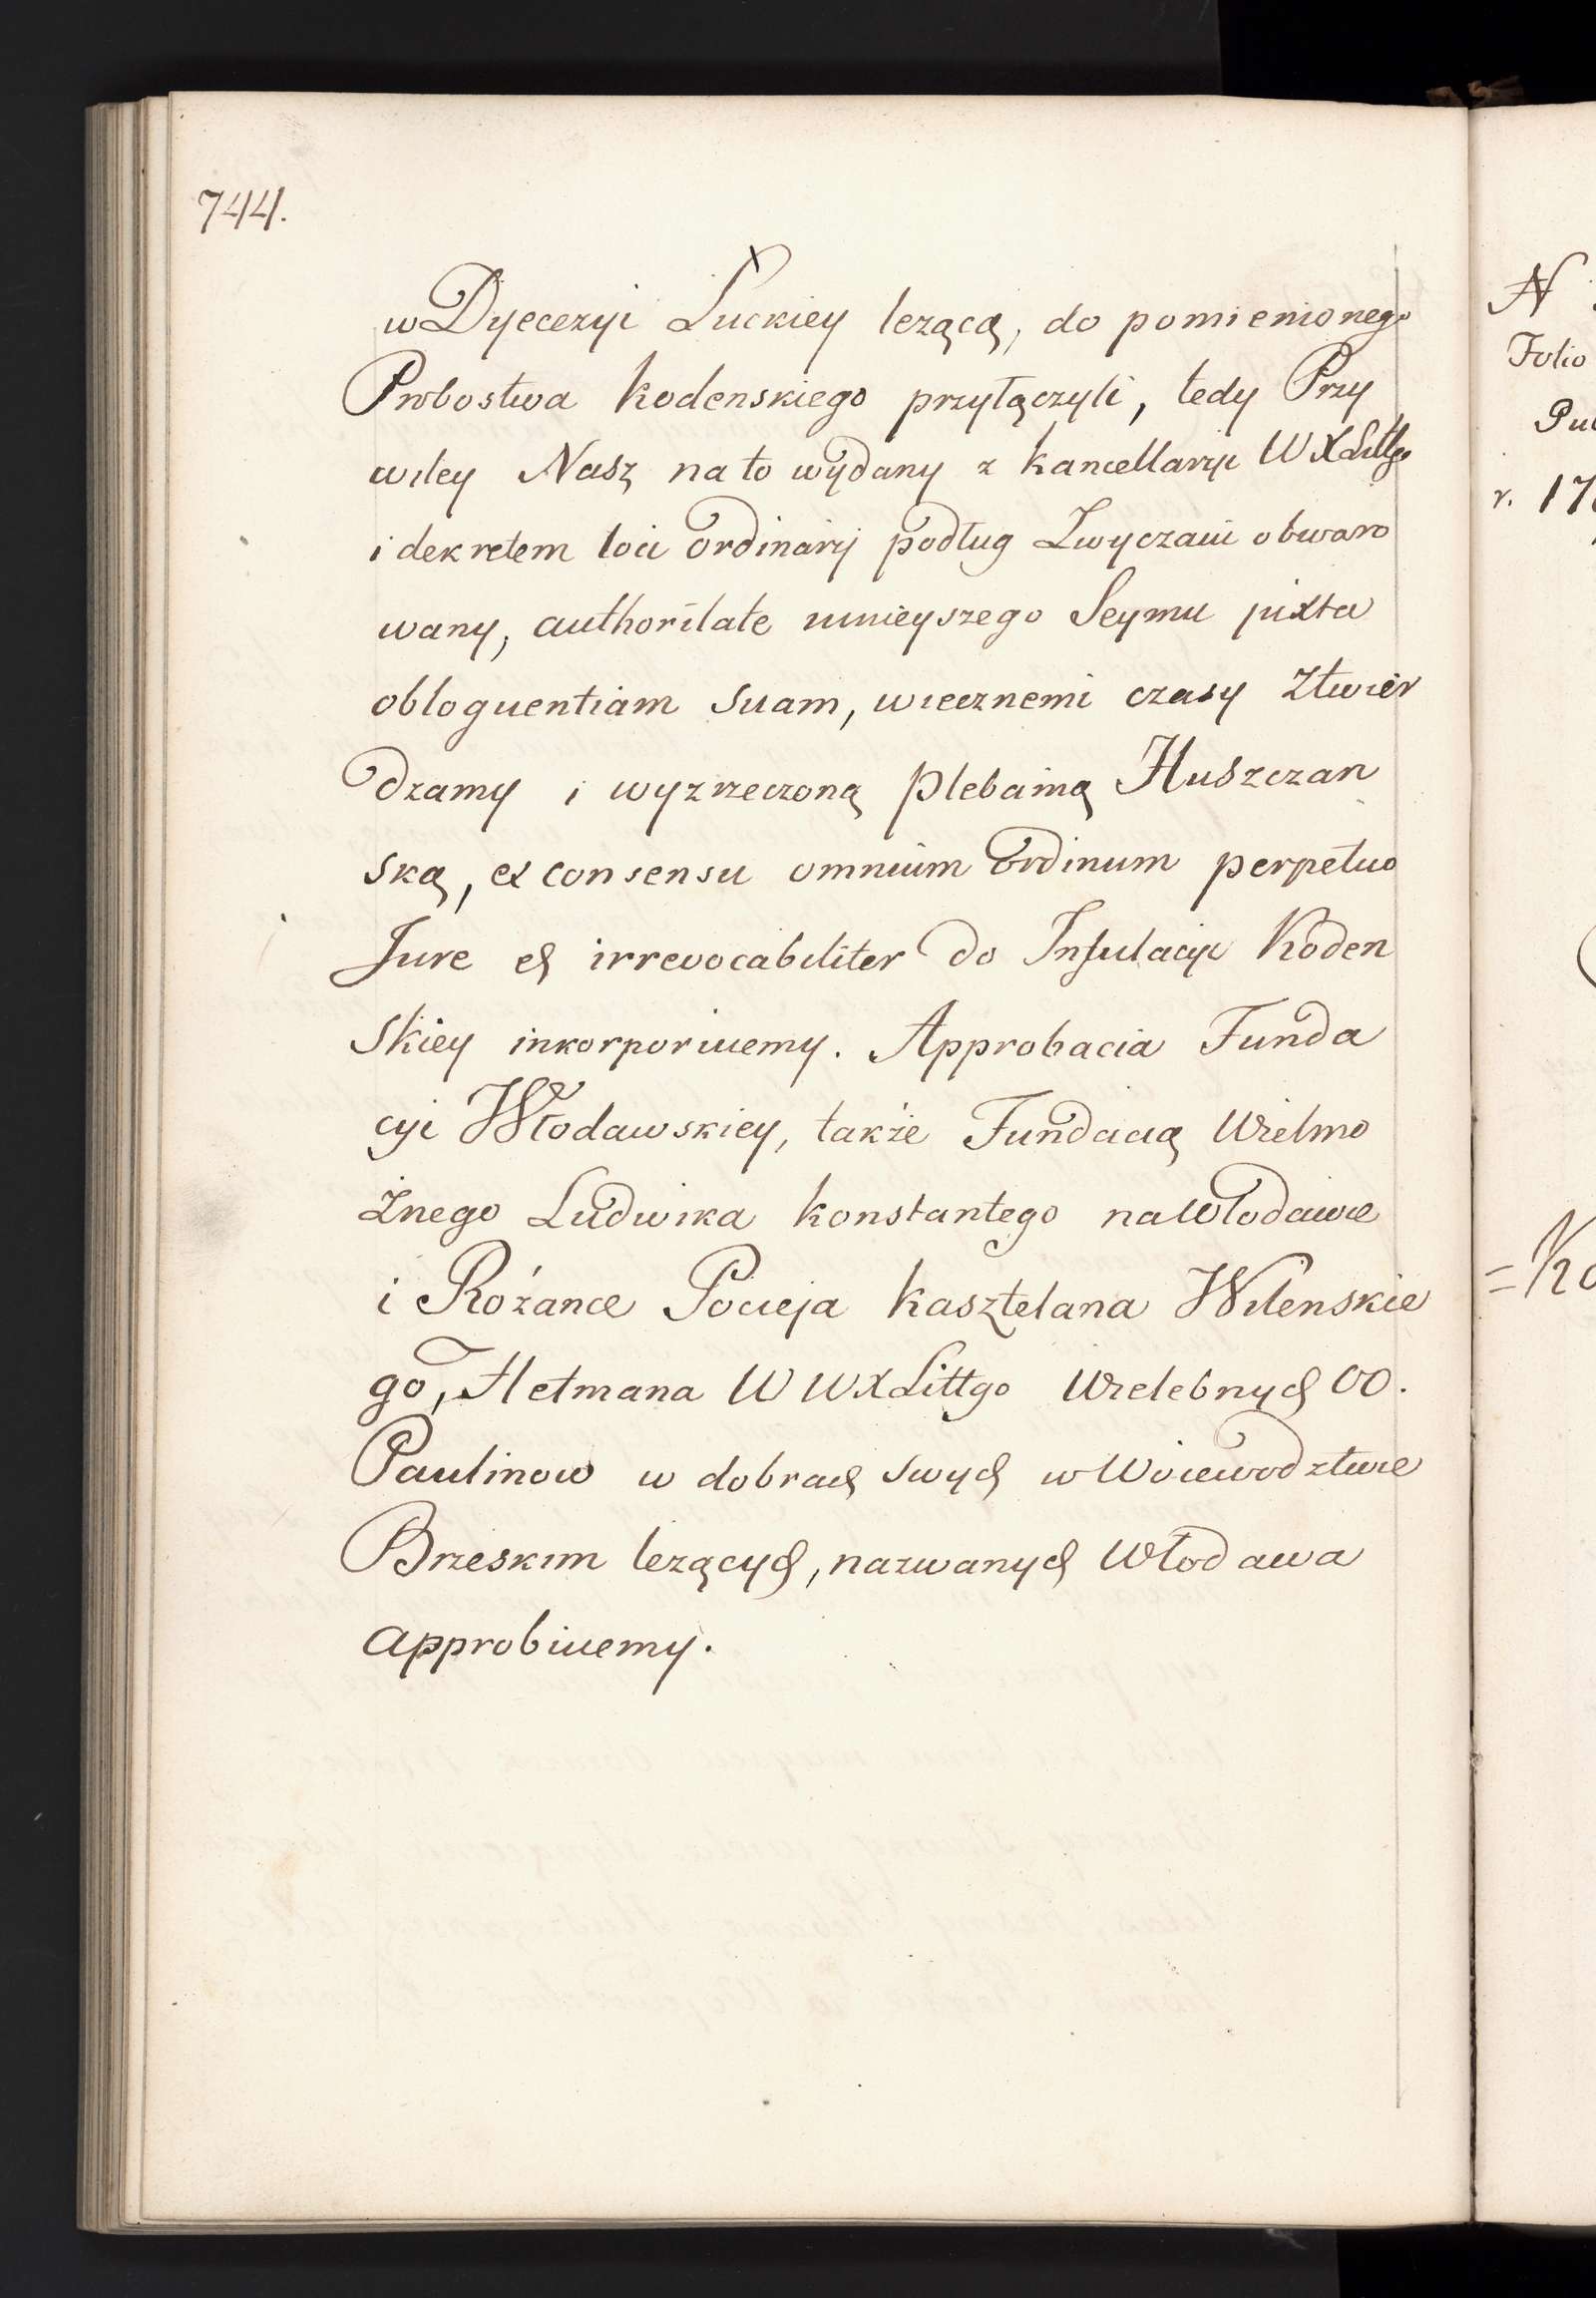 744.
w Dyecezyi Łuckiey lezącą, do pomienionego
Probostwa Kodenskiego przyłączyli, tedy Przy
wiley Nasz na to wydany z Kancellaryi W X Littgo
i dekretem loci ordinarij podług Zwyczaiu obwaro
wany, authoritate ninieyszego Seymu juxta
obloquentiam suam, wiecznemi czasy ztwier
dzamy i wyzrzeczoną Plebanią Huszczan
ską, ex consensu omnium ordinum perpetuo
Jure et irrevocabiliter do Infulacyi Koden
skiey inkorporuiemy. Approbacia Funda
cyi Włodawskiey, także Fundacią Wielmo
żnego Ludwika Konstantego na Włodawie
i Różance Pocieja Kasztelana Wilenskie
go, Hetmana W W X Littgo Wielebnych OO.
Paulinow w dobrach swych w Woiewodztwie
Brzeskim lezących, nazwanych Włodawa
approbuiemy.
N
Folio
r. 17
= Ko